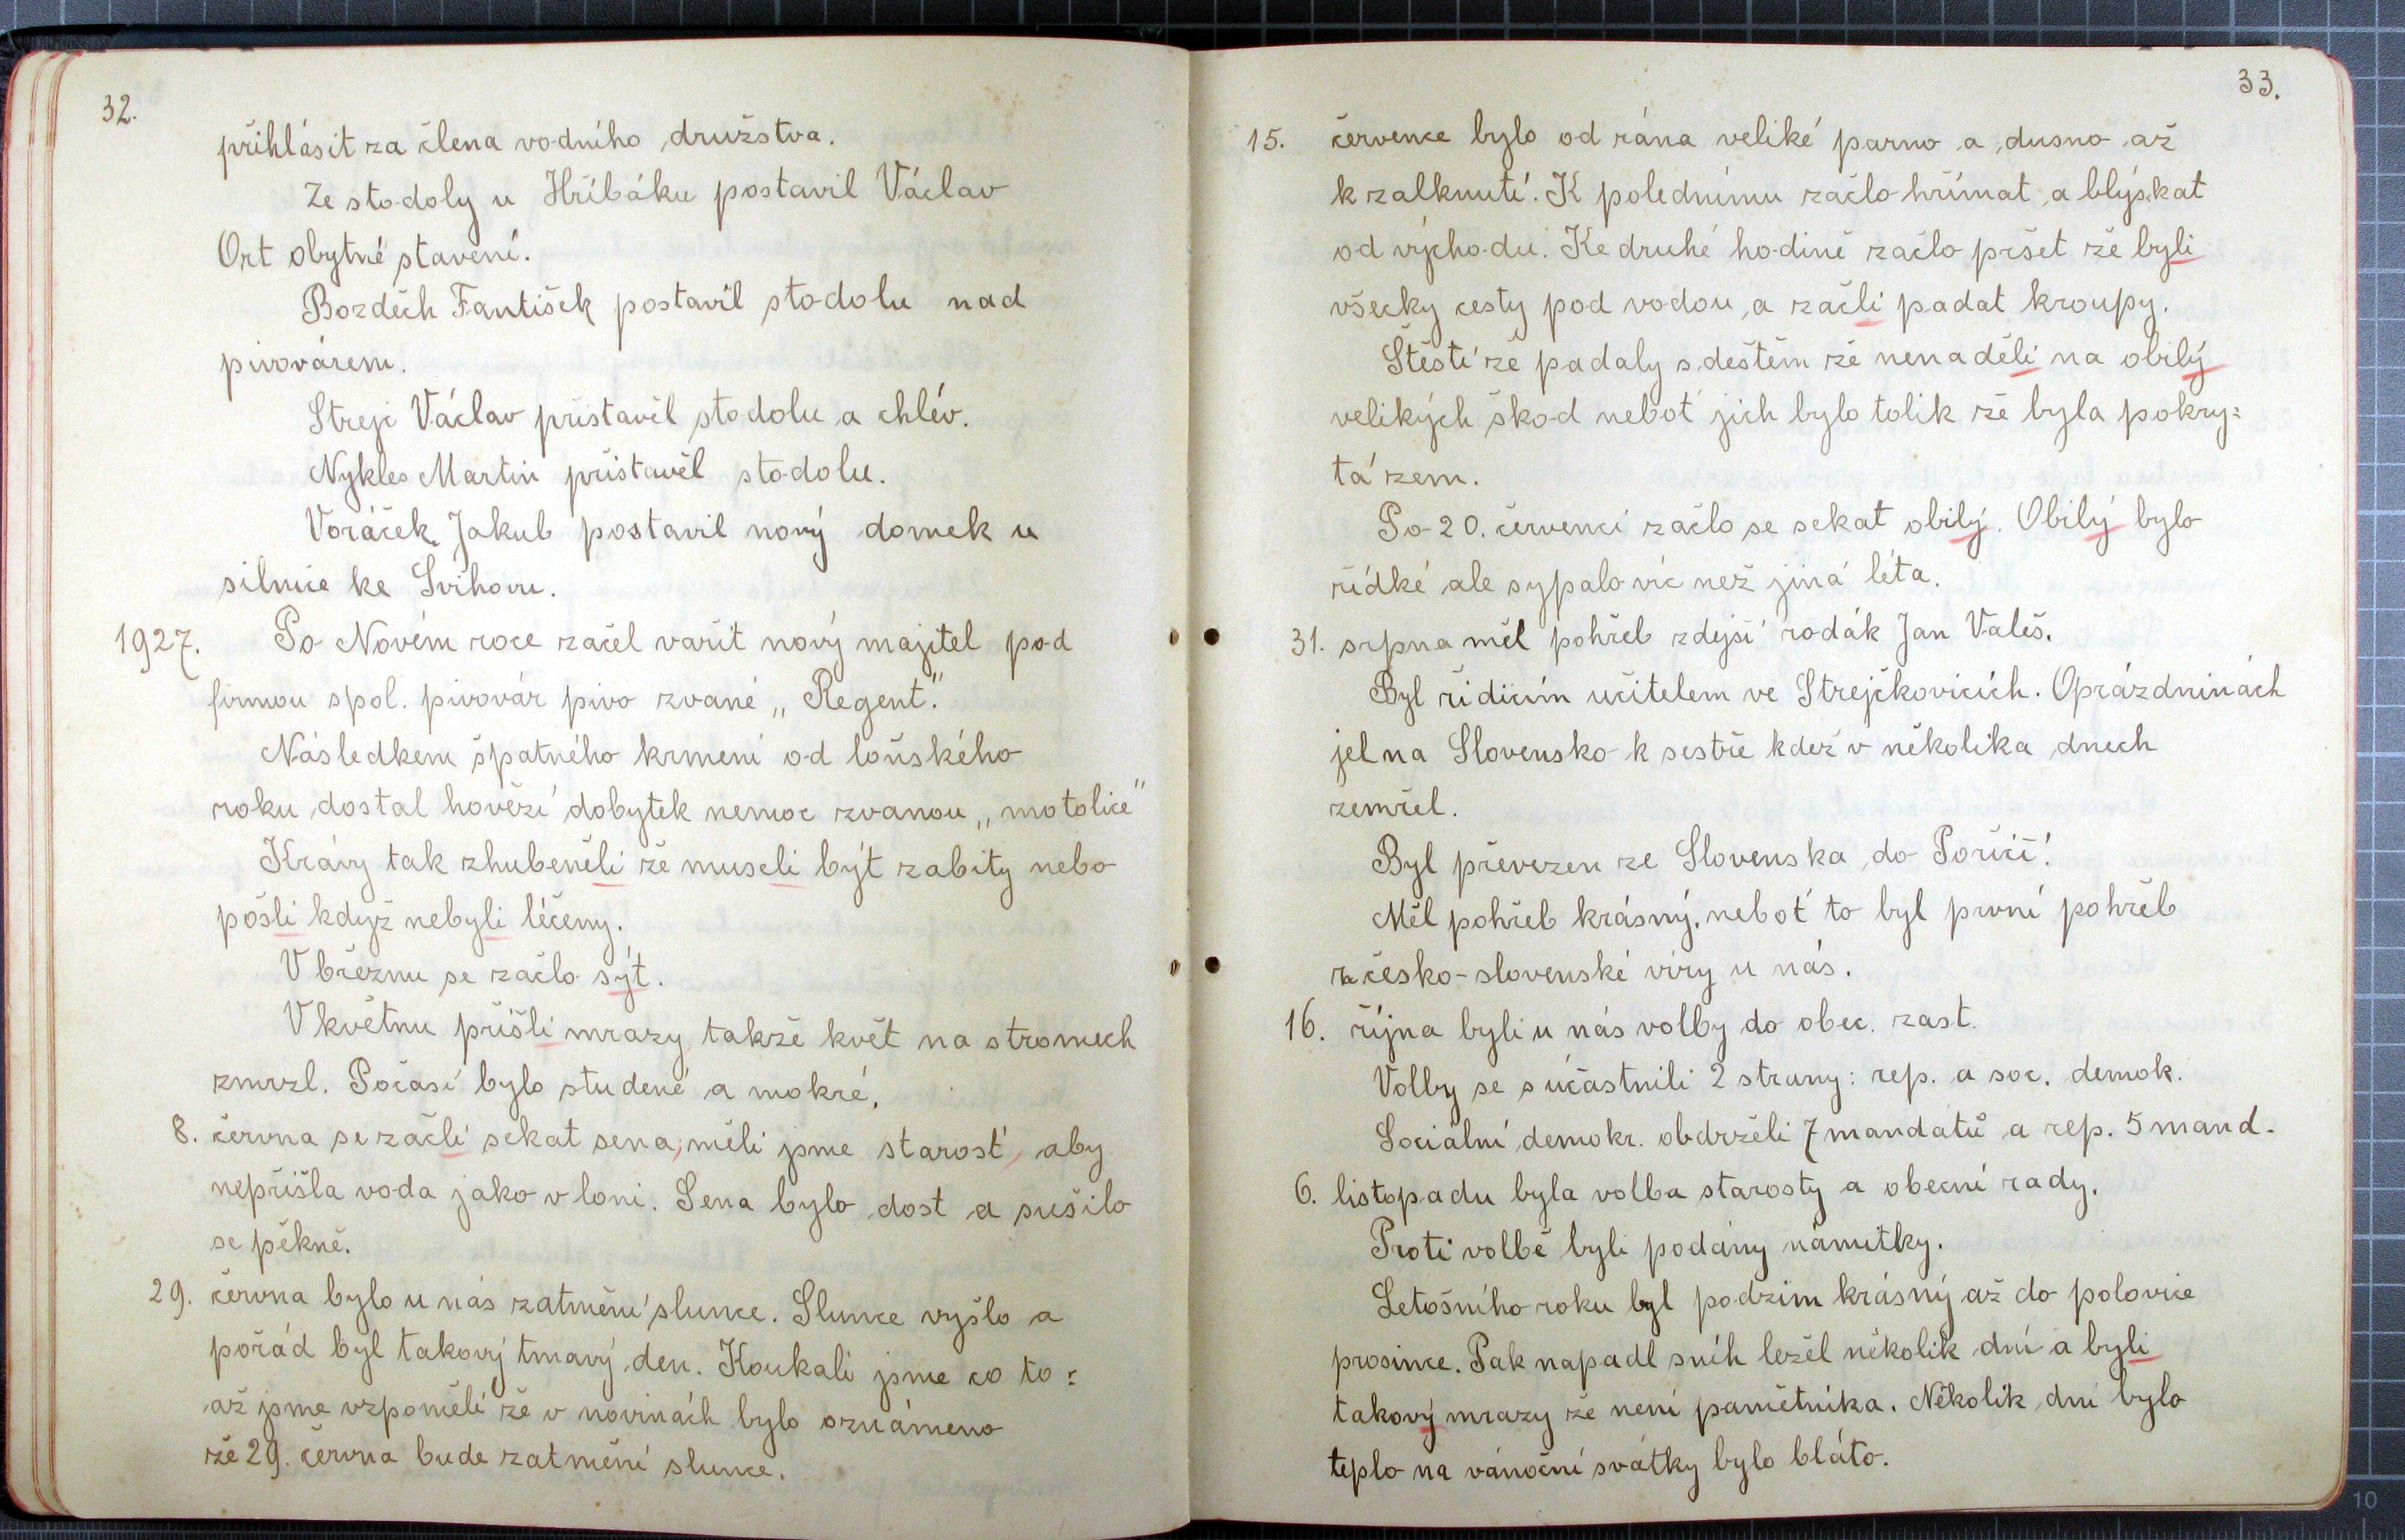 32.
přihlásit za člena vodního družstva.
Ze stodoly u Hříbáku postavil Václav
Ort obytné stavení.
Bozděch Fantišek postavil stodolu nad
pivovárem.
Strejc Václav přistavěl stodolu a chlév.
Nykles Martin přistavěl stodolu.
Voráček Jakub postavil nový domek u
silnice ke Švihovu.
1927. Po Novém roce začel vařit nový majitel pod
firmou spol. pivovár pivo zvané „Regent".
Následkem špatného krmení od loňského
roku dostal hovězí dobytek nemoc zvanou „motolice"
Krávy tak zhubeněli že museli být zabity nebo
pošli když nebyli léčeny.
V březnu se začlo sýt.
V květnu přišli mrazy, takže květ na stromech
zmrzl. Počasí bylo studené a mokré.
8. června se začli sekat sena, měli jsme starosť, aby
nepřišla voda jako v loni. Sena bylo dost a sušilo
se pěkně.
29. června bylo u nás zatmění slunce. Slunce vyšlo a
pořád byl takový tmavý den. Koukali jsme co to:
až jsme vzpoměli že v novinách bylo oznámeno
že 29. června bude zatmění slunce.
33.
15. července bylo od rána veliké parno a dusno až
k zalknutí. K polednímu začlo hřímat a blýskat
od východu. Ke druhé hodině začlo pršet že byli
všecky cesty pod vodou, a začli padat kroupy.
Štěstí že padaly s deštěm že nenaděli na obilý
velikých škod neboť jich bylo tolik že byla pokry=
tá zem.
Po 20. červenci začlo se sekat obilý. Obilý bylo
řídké ale sypalo víc než jiná léta.
31. srpna měl pohřeb zdejší rodák Jan Valeš.
Byl řídícím učitelem ve Strejčkovicích. O prázdninách
jel na Slovensko k sestře kdež v několika dnech
zemřel.
Byl převezen ze Slovenska do Poříčí.
Měl pohřeb krásný, neboť to byl první pohřeb
z česko-slovenské víry u nás.
16. října byli u nás volby do obec. zast.
Volby se súčastnili 2 strany: rep. a soc. demok.
Sociální demokr. obdrželi 7 mandatů a rep. 5 mand.
6. listopadu byla volba starosty a obecní rady.
Proti volbě byli podány námitky.
Letošního roku byl podzim krásný až do polovice
prosince. Pak napadl sníh ležel několik dní a byli
takový mrazy že není pamětníka. Několik dní bylo
teplo na vánoční svátky bylo bláto.
10